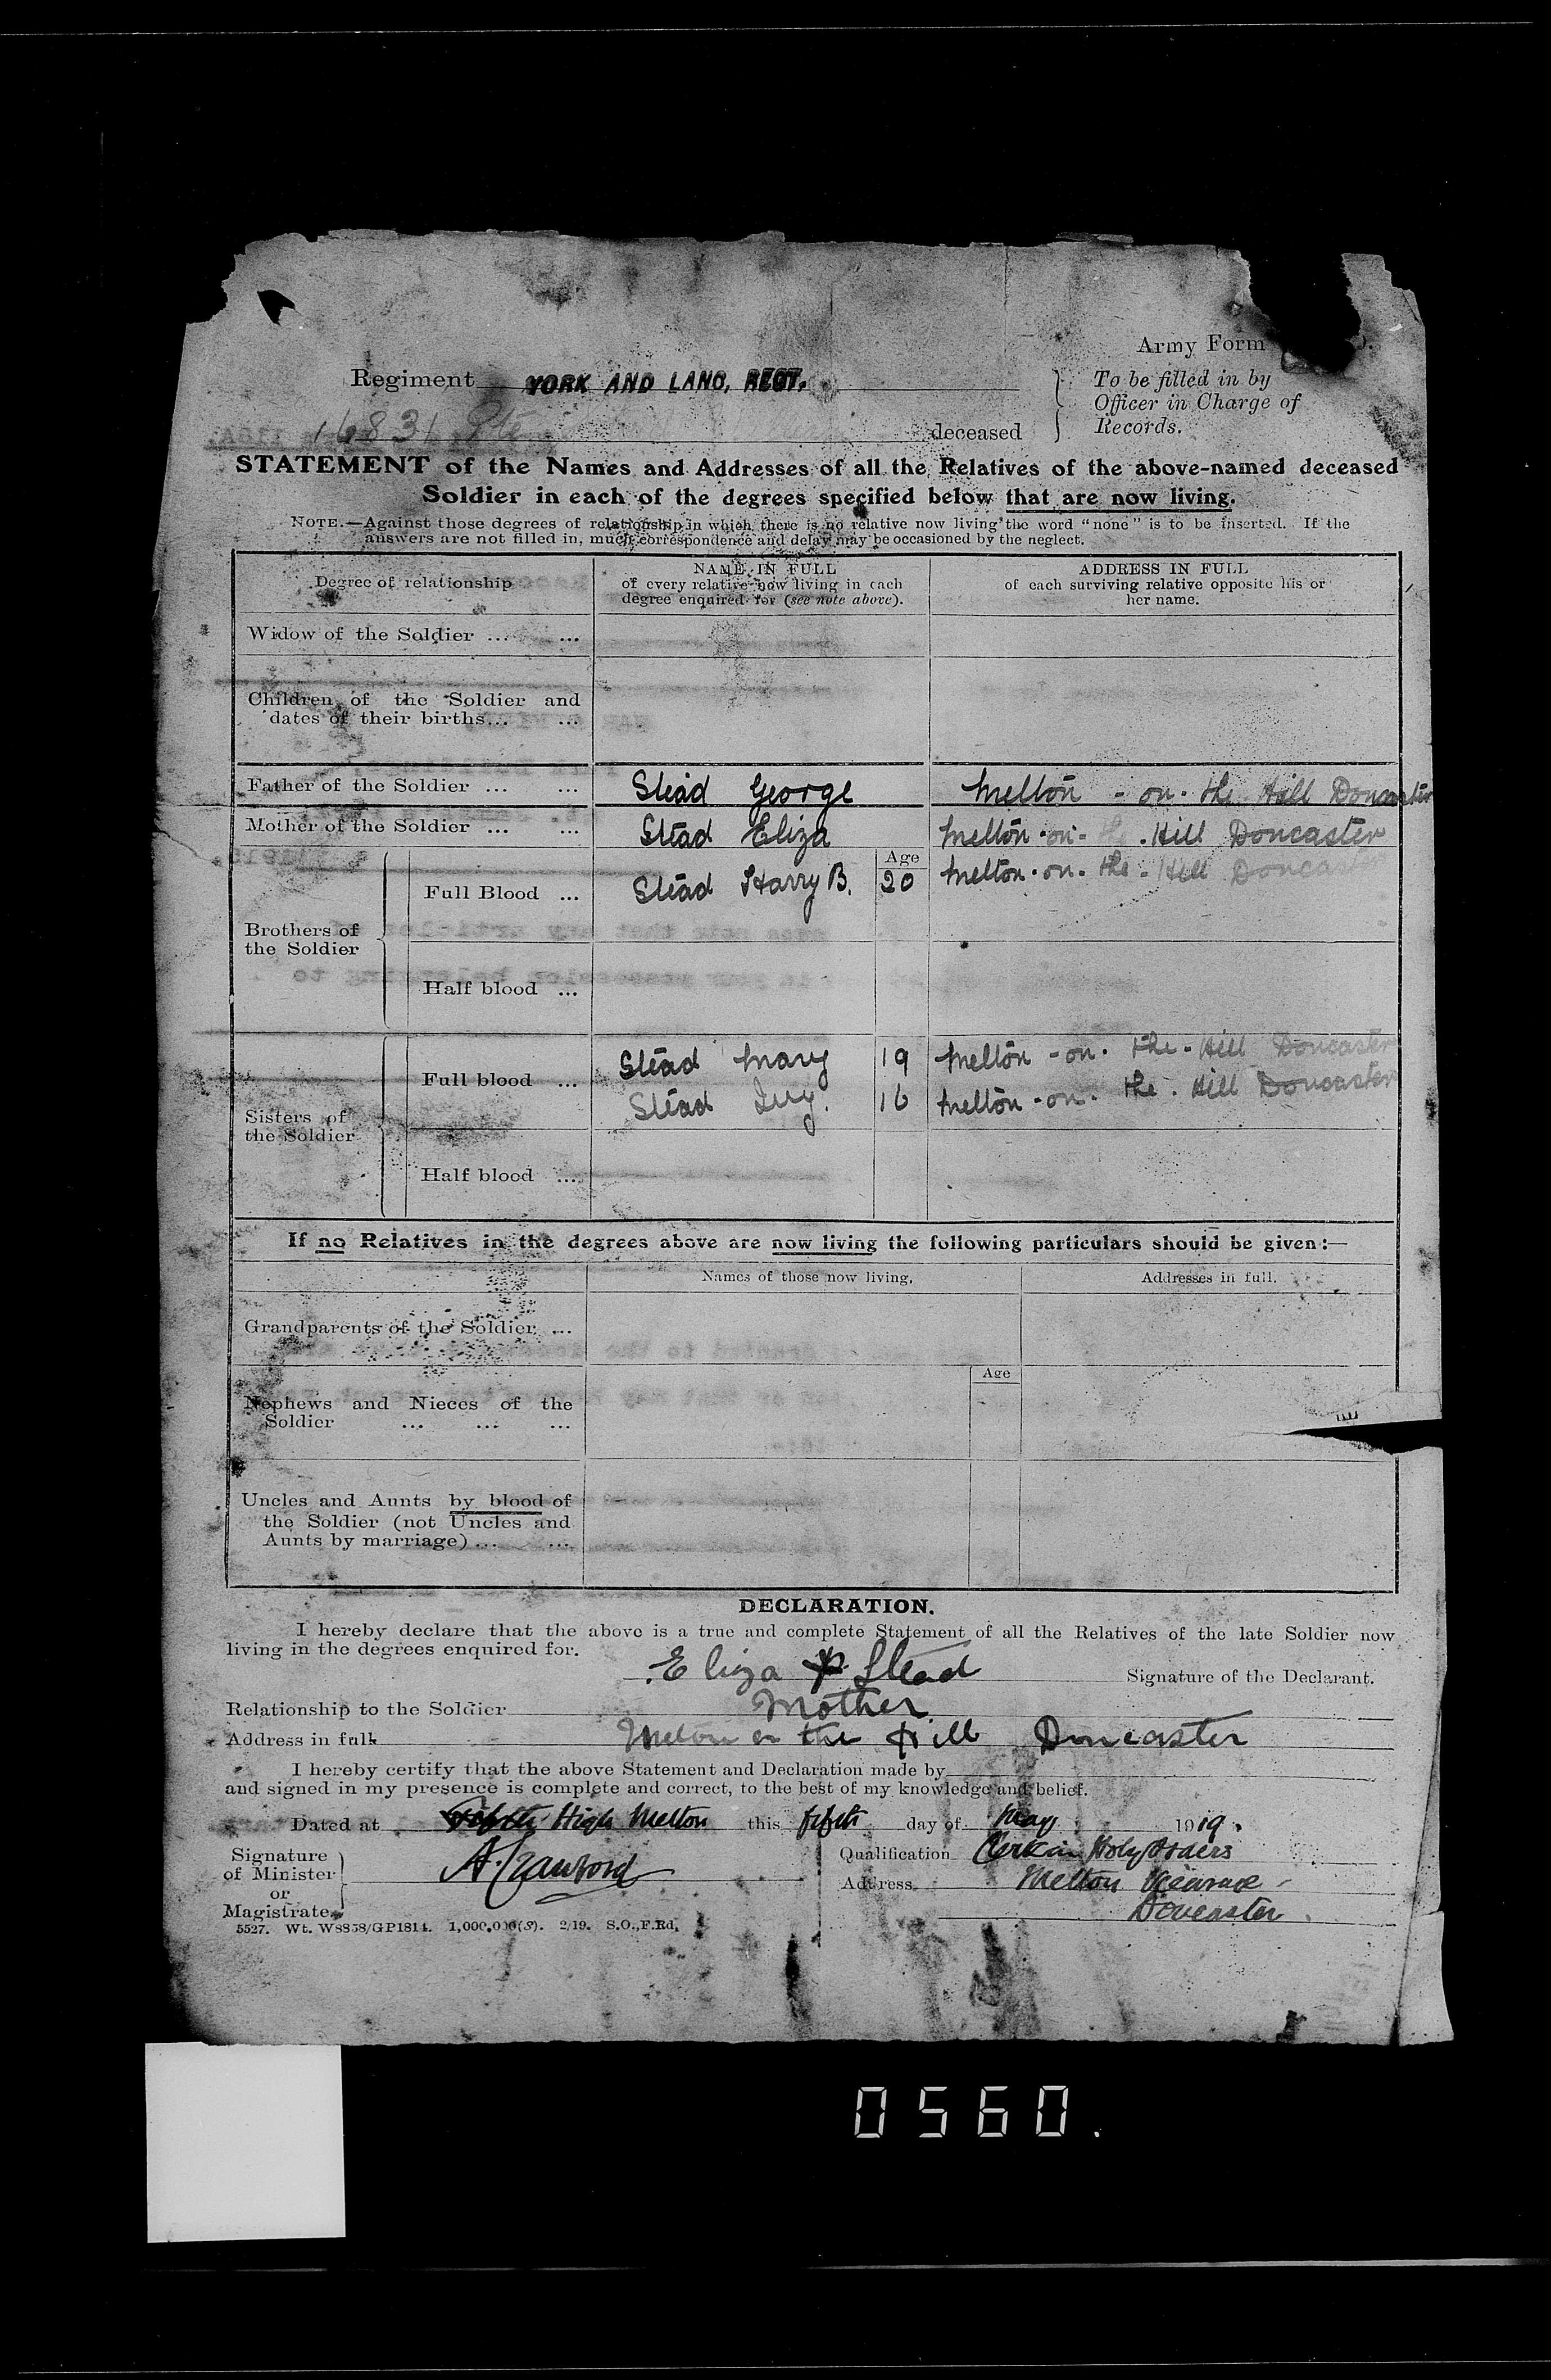 Army Form
Regiment YORK AND LANC. REGT.
To be filled in by
Officer in Charge of
Records.
16831 Pte deceased
STATEMENT of the Names and Addresses of all the Relatives of the above-named deceased
Soldier in each of the degrees specified below that are now living.
NOTE.—Against those degrees of relationship in which there is no relative now living the word "none" is to be inserted. If the
answers are not filled in, much correspondence and delay may be occasioned by the neglect.
Degree of relationship
NAME IN FULL
of every relative now living in each
degree enquired for (see note above).
ADDRESS IN FULL
of each surviving relative opposite his or
her name.
Widow of the Soldier ... ...
Children of the Soldier and
dates of their births... ...
Father of the Soldier ... ... Stead George Melton - on - the Hill Doncaster
Mother of the Soldier ... ... Stead Eliza Melton - on - the - Hill Doncaster
Age
Brothers of
the Soldier
Full Blood ... Stead Harry B. 20 Melton - on - the - Hill Doncaster
Half blood ...
Sisters of
the Soldier
Full blood ... Stead Mary 19 Melton - on - the - Hill Doncaster
Stead 16 Melton - on - the - Hill Doncaster
Half blood ...
If no Relatives in the degrees above are now living the following particulars should be given:—
Names of those now living.
Addresses in full.
Grandparents of the Soldier ...
Age
Nephews and Nieces of the
Soldier ... ... ...
Uncles and Aunts by blood of
the Soldier (not Uncles and
Aunts by marriage) ... ...
DECLARATION.
I hereby declare that the above is a true and complete Statement of all the Relatives of the late Soldier now
living in the degrees enquired for.
Eliza Stead Signature of the Declarant.
Relationship to the Soldier Mother
Address in full Melton on the Hill Doncaster
I hereby certify that the above Statement and Declaration made by
and signed in my presence is complete and correct, to the best of my knowledge and belief.
Dated at High Melton this fifth day of May 1919.
Signature
of Minister
or
Magistrate
Qualification Clerk in Holy Orders
Address Melton Vicarage
Doncaster
5527. Wt. W8858/GP1811. 1,000,000(S). 2/19. S.O.,F.Rd.
0560.